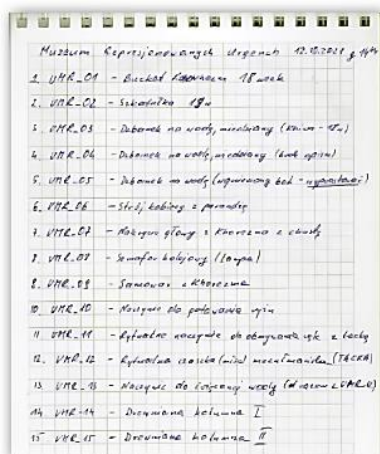 Muzeum Represjonowanych Urgench 12.10.2021 g. 14
1. UMR_01 - Buchad 18 wiek
2. UMR_02 - Szkatułka 19w
3. UMR_03 - Dzbanek na wodę, miedziany
4. UMR_04 - Dzbanek na wodę, miedziany (brak opisu)
5. UMR_05 - Dzbanek na wodę
6. UMR_06 - Strój kobiecy z parandżą
7. UMR_07 - Nakrycie głowy z Khorezma z chustą
8. UMR_08 - Semafor kolejowy (lampa)
9. UMR_09 - Samowar z Khorezma
10. UMR_10 - Naczynie do gotowania
11. UMR_11 - Rytualne naczynie do obmywania rąk z tacką
12. UMR_12 - Rytualna czaszka
13. UMR_13 - Naczynie do wody
14 UMR_14 - Drewniana kolumna I
15 UMR_15 - Drewniana kolumna II